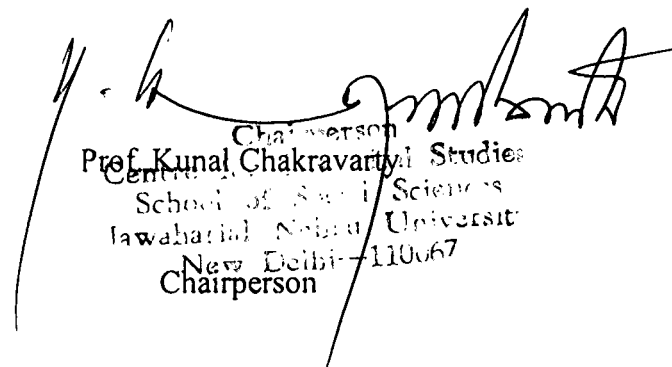 Chairperson
Prof. Kunal Chakravarty
Centre Studies
School of Social Sciences
Jawaharlal Nehru University
New Delhi-110067
Chairperson